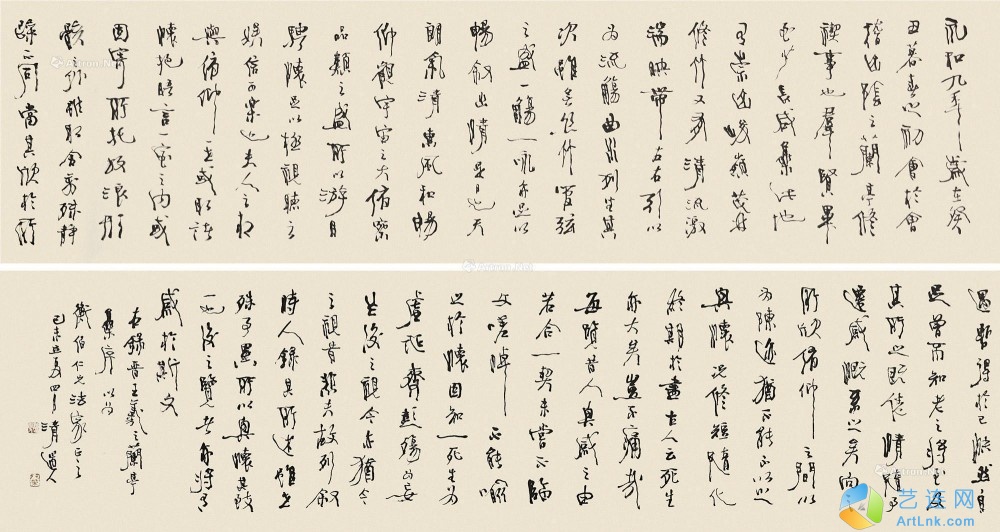 永和九年歲在癸
丑暮春之初會於會
稽山陰之蘭亭修
禊事也群賢畢
至少長咸集此地
有崇山峻嶺茂林
修竹又有清流激
湍映帶左右引以
為流觴曲水列坐其
次雖無絲竹管弦
之盛一觴一詠亦足以
暢敘幽情是日也天
朗氣清惠風和暢
仰觀宇宙之大俯察
品類之盛所以游目
騁懷足以極視聽之
娛信可樂也夫人之相
與俯仰一世或取諸
懷抱晤言一室之內或
因寄所托放浪形
骸之外雖取舍萬殊靜
躁不同當其欣於所
遇暫得於己快然自
足曾不知老之將至及
其所之既倦情隨事
遷感慨系之矣向之
所欣俯仰之間以
為陳迹猶不能不以之
興懷況修短隨化
終期於盡古人云死生
亦大矣豈不痛哉
每覽昔人興感之由
若合一契未嘗不臨
文嗟悼不能喻
之於懷固知一死生為
虛誕齊彭殤為妄
作後之視今亦猶今
之視昔悲夫故列敘
時人錄其所述雖世
殊事異所以興懷其致
一也後之覽者亦將有
感於斯文
右錄晉王羲之蘭亭
集序以為
伯仁兄法家正之
己未夏四月清道人
艺连网
ArtLnk.com